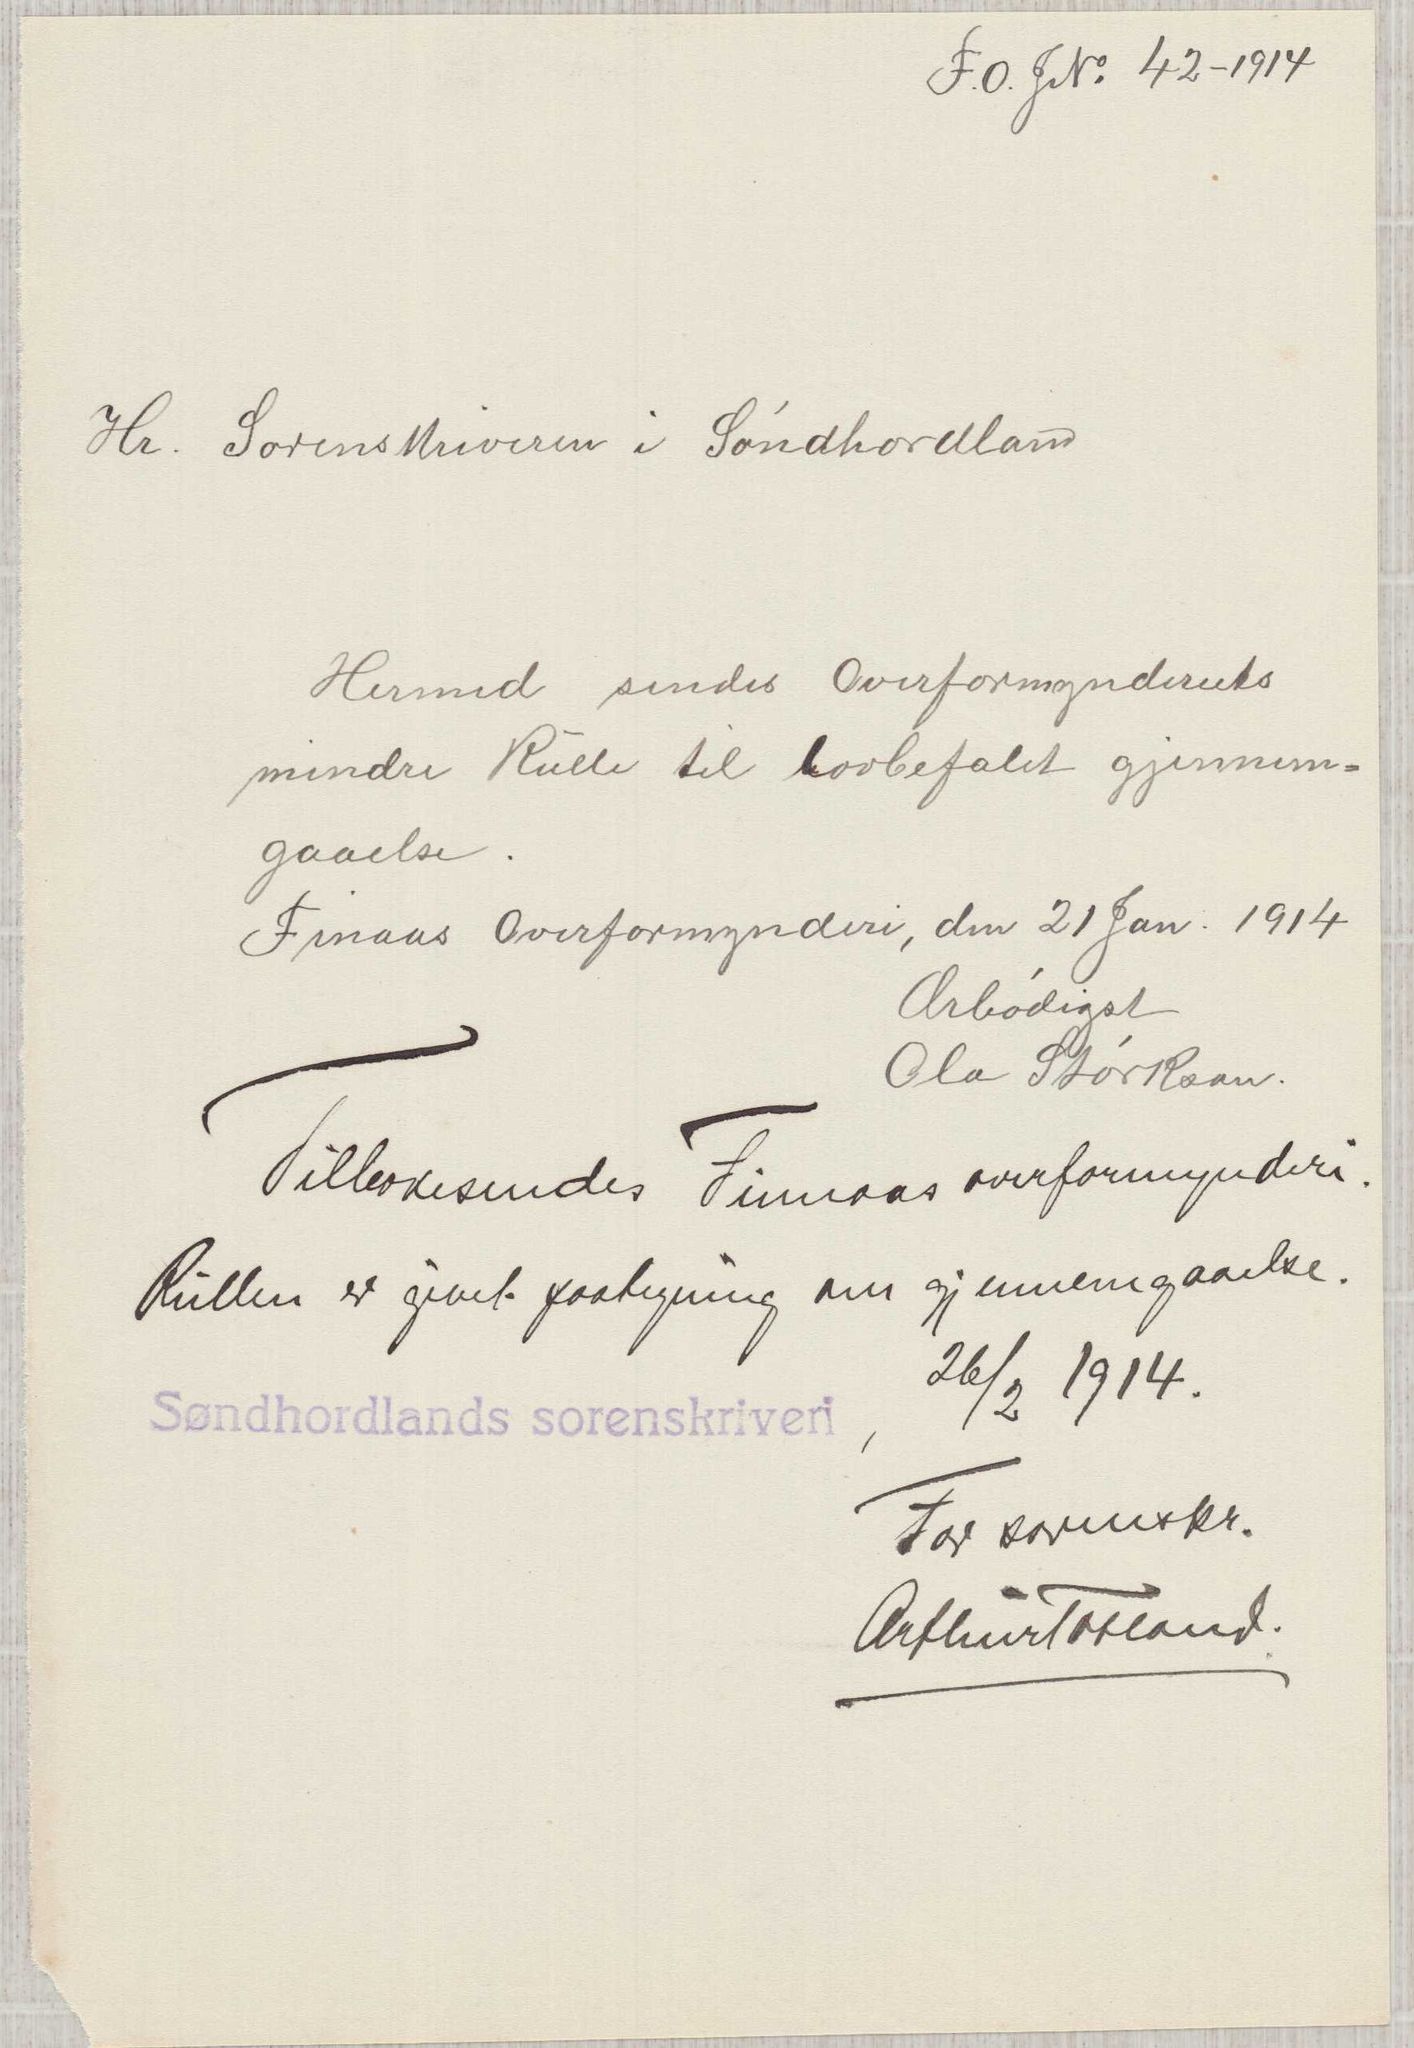 F.O. JNo. 42-1914
Hr. Sorenskriveren i Søndhordland
Hermed sendes Overformynderiets
mindre Rulle til lovbefalet gjennem-
gaaelse.
Finaas Overformynderi, den 21 Jan. 1914
Ærbødigst
Ola Størkson.
Tilbakesendes Finnaas overformynderi.
Rullen er givet paategning om gjennemgaaelse.
Søndhordlands sorenskriveri, 26/2 1914.
For sorenskr.
Arthur